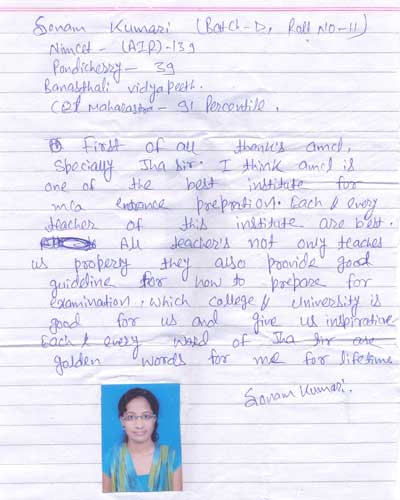 Sonam Kumari (Batch-D, Roll No-11)
Nimcet - (AIR)-139
Pondicherry - 39
Banasthali vidyapeeth.
CET Maharastra - 91 Percentile.
First of all thank's amcl,
Specially Jha sir. I think amcl is
one of the best institute for
mca entrance prepration. Each & every
teacher of this institute are best.
All teacher's not only teaches
us property they also provide good
guideline for how to prepare for
examination, which college & university is
good for us and give us inspirative
Each & every word of Jha sir are
golden words for me for lifetime
Sonam Kumari.